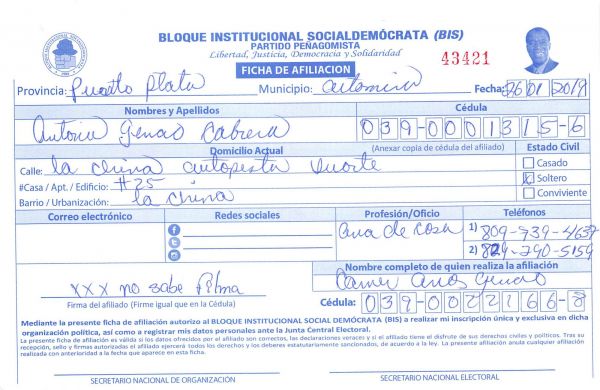 BLOQUE INSTITUCIONAL SOCIALDEMÓCRATA (BIS)
PARTIDO PEÑAGOMISTA
Libertad, Justicia, Democracia y Solidaridad
43421
FICHA DE AFILIACION
Provincia: Puerto Plata Municipio: Fecha: 26/01/2019
Nombres y Apellidos Cédula
Genao Cabrera 039-0001315-6
Domicilio Actual (Anexar copia de cédula del afiliado) Estado Civil
Calle: la china autopista Duarte Casado
#Casa / Apt. / Edificio: #25 Soltero
Barrio / Urbanización: la china Conviviente
Correo electrónico Redes sociales Profesión/Oficio Teléfonos
ama de casa 1) 809-739-4637
2) 829-290-5159
Nombre completo de quien realiza la afiliación
xxx no sabe Firma
Firma del afiliado (Firme igual que en la Cédula) Cédula: 039-0022166-8
Mediante la presente ficha de afiliación autorizo al BLOQUE INSTITUCIONAL SOCIAL DEMÓCRATA (BIS) a realizar mi inscripción única y exclusiva en dicha
organización política, así como a registrar mis datos personales ante la Junta Central Electoral.
La presente ficha de afiliación es válida si los datos ofrecidos por el afiliado son correctos, las declaraciones veraces y si el afiliado tiene el disfrute de sus derechos civiles y políticos. Tras su
recepción, sello y firmas autorizadas el afiliado ejercerá todos los derechos y los deberes estatutariamente sancionados, de acuerdo a la ley. La presente afiliación anula cualquier afiliación
realizada con anterioridad a la fecha que aparece en esta ficha.
SECRETARIO NACIONAL DE ORGANIZACIÓN SECRETARIO NACIONAL ELECTORAL